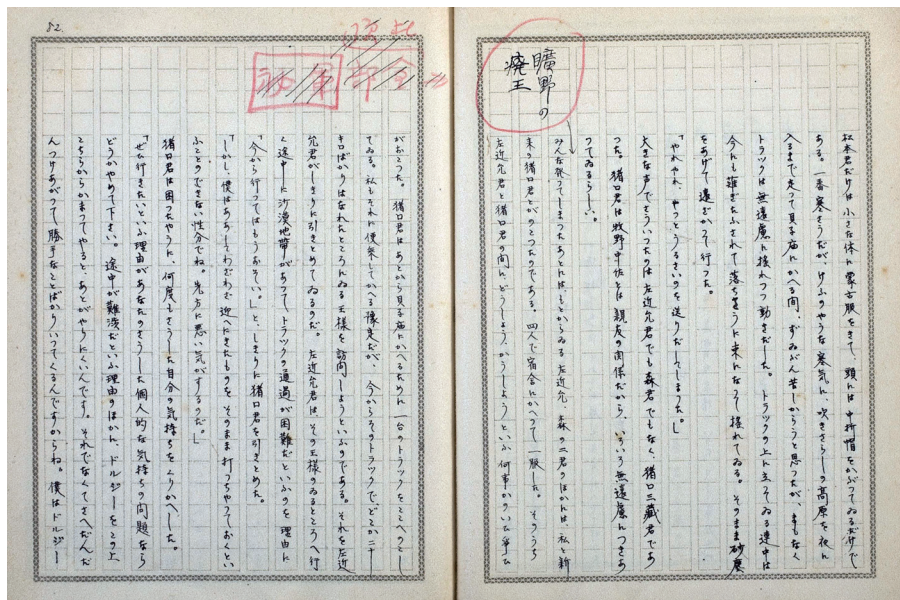 松本君だけは小さな体に蒙古服をきて、頭には中折帽をかぶつてゐるだけで
ある。一番寒さうだが、けふのやうな寒気に、吹きさらしの高原を夜に
入るまで走て貝子廟にかへる間、ずゐぶん苦しからうと思つたが、まもなく
トラックは無遠慮に揺れつつ動きだした。トラックの上に立つてゐる連中は
今にも薙ぎたふされて落ちさうに来になつて揺れてゐる。そのまま砂塵
をあげて遠ざかつて行つた。
「やれやれ、やつとうるさいのを送りだしてしまつた。」
大きな声でさういつたのは左近允君でも森君でもなく猪口三蔵君であ
つた。猪口君は牧野中佐とは親友の関係だから、いろいろ無遠慮につきあ
つてゐるらしい。
曠野の
廃王
みんな発つてしまつたあとにはもとからゐる左近允、森の二君のほかには、私と新
来の猪口君とがのこつたのである。四人で宿舎にかへつて一服した。そのうち
左近允君と猪口君の間に、どうしよう、かうしようといふ何事かのいひ争ひ
82.
がおこつた。猪口君はあとから貝子廟にかへるために一台のトラックをここへのこし
てゐる。私もそれに便乗してかへる豫定だが、今からそのトラックでどこか二十
キロばかりはなれたところにゐる王様を訪問しようといふのである。それを左近
允君がしきりに引きとめてゐるのだ。左近允君は、その王様のゐるところへ行
く途中に沙漠地帯があつて、トラックの通過が困難だといふのを理由に
「今から行つてはもうおそい。」と、しきりに猪口君を引きとめた。
「しかし、僕はああしてわざわざ迎へにきたものをそのまま打つちやつておくとい
ふことのできない性分でね。先方に悪い気がするのだ。」
猪口君は困つたやうに、何度もさうした自分の気持ちをくりかへした。
「ぜひ行きたいといふ理由があなたのさうした個人的な気持ちの問題なら
どうかやめて下さい。途中が難渋だといふ理由のほかに、ドルジーをこの上
こちらからかまつてやると、あとがやりにくいんです。それでなくてさへだんだ
んつけあがつて勝手なことばかりいつてくるんですからね。僕はドルジー